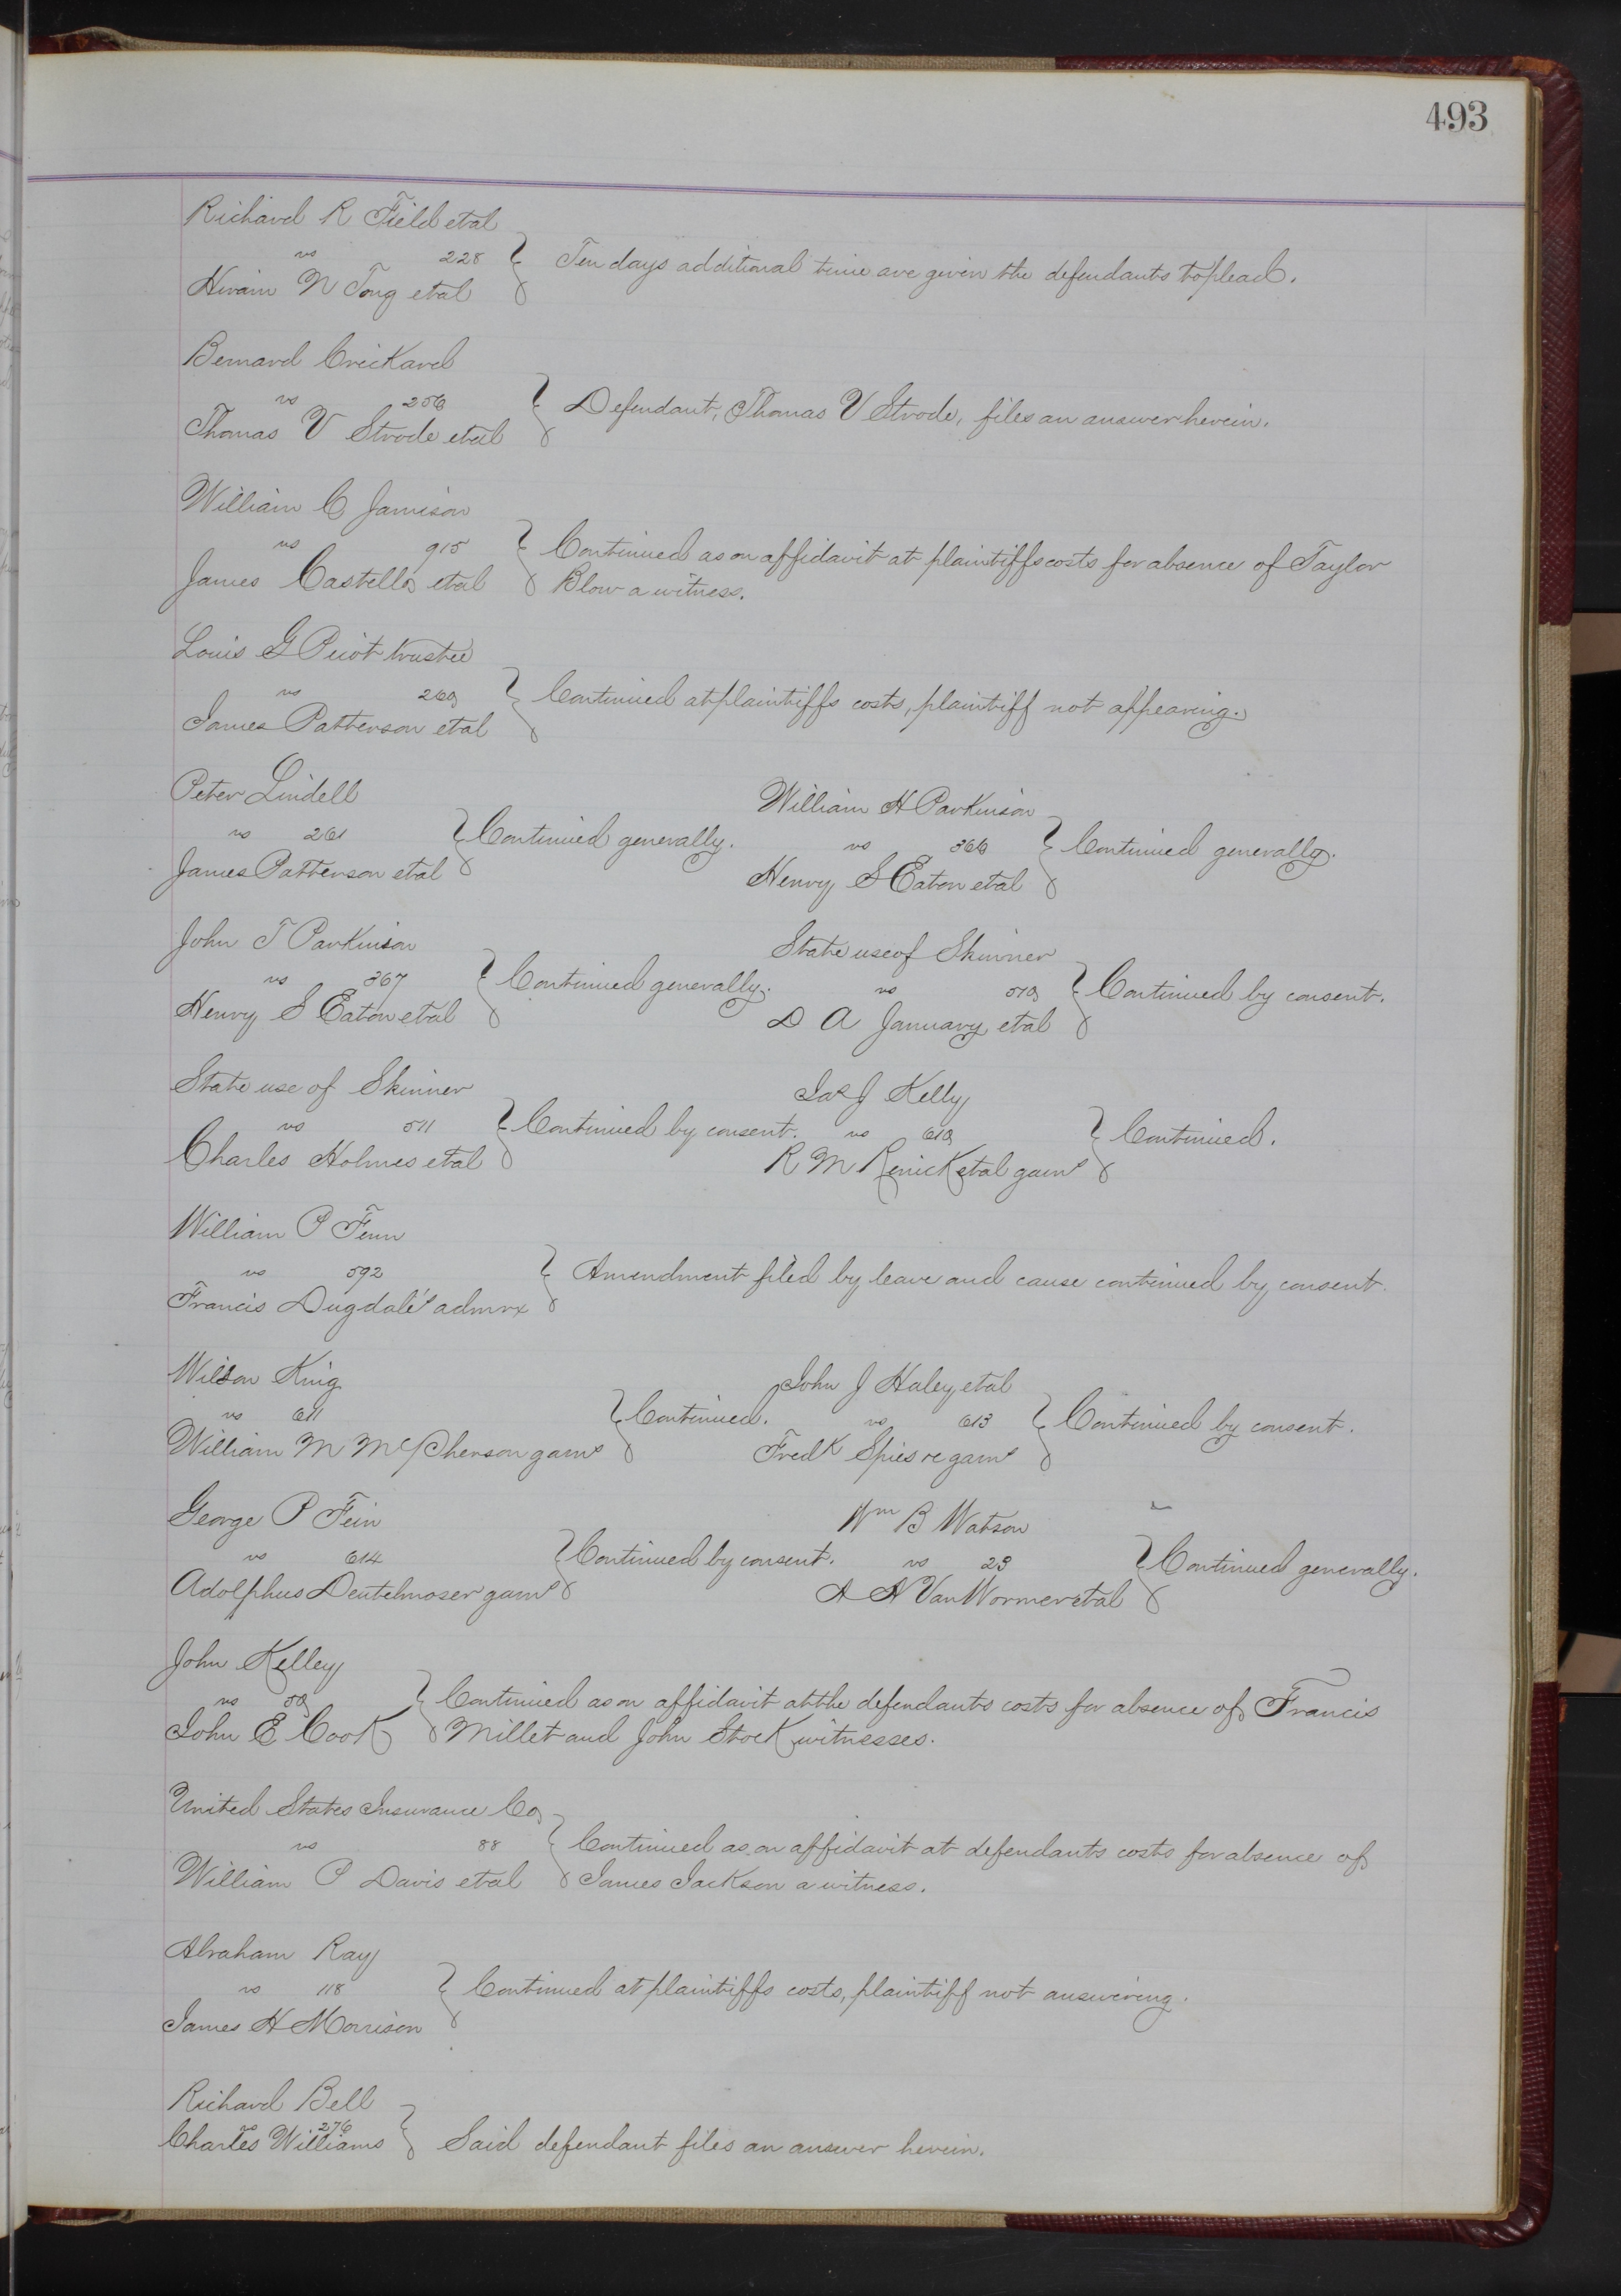 493
Richard R Field etal
vs 228
Hiram N Tong etal
Ten days additional time are given the defendants to plead.
Bernard Crickard
vs 256
Thomas V Strode etal
Defendant, Thomas V Strode, files an answer herein.
William C Jamison
vs 915
James Castello etal
Continued as on affidavit at plaintiffs costs for absence of Taylor
Blow a witness.
Louis G Picot trustee
vs 260
James Patterson etal
Continued at plaintiffs costs, plaintiff not appearing.
Peter Lindell
vs 261
James Patterson etal
Continued generally.
William H Parkinson
vs 366
Henry S Eaton etal
Continued generally.
John T Parkinson
vs 367
Henry S Eaton etal
Continued generally.
State use of Skinner
vs 510
D A January etal
Continued by consent.
State use of Skinner
vs 511
Charles Holmes etal
Continued by consent.
Jas J Kelly
vs 610
R M Renick etal garns
Continued.
William P Fenn
vs 592
Francis Dugdale's admrx
Amendment filed by leave and cause continued by consent.
Wilson King
vs 611
William M McPherson garns
Continued.
John J Haley etal
vs 613
Fredk Spies re garns
Continued by consent.
George P Fein
vs 614
Adolphus Deutelmoser garns
Continued by consent.
Wm B Watson
vs 23
A H Van Wormer etal
Continued generally.
John Kelley
vs 50
John E Cook
Continued as on affidavit at the defendants costs for absence of Francis
Millet and John Stock witnesses.
United States Insurance Co
vs 88
William P Davis etal
Continued as on affidavit at defendants costs for absence of
James Jackson a witness.
Abraham Ray
vs 118
James H Morrison
Continued at plaintiffs costs, plaintiff not answering.
Richard Bell
vs 276
Charles Williams
Said defendant files an answer herein.